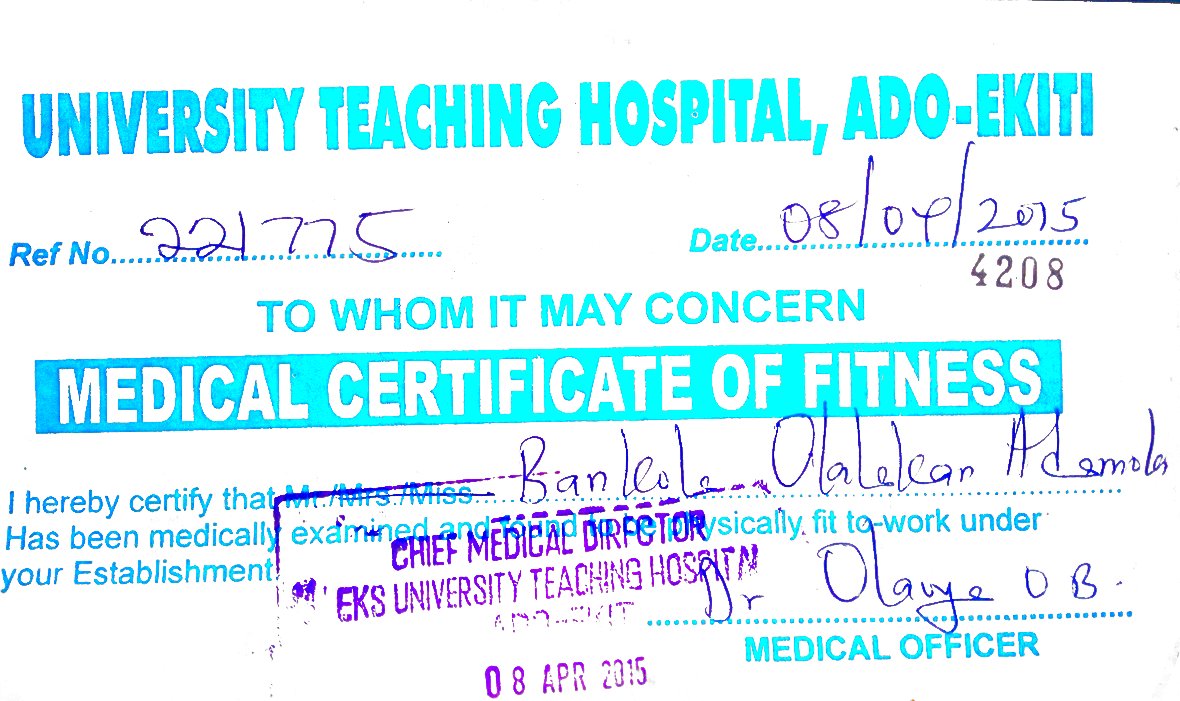 UNIVERSITY TEACHING HOSPITAL, ADO-EKITI
Ref No. 221775 Date 08/04/2015
4208
TO WHOM IT MAY CONCERN
MEDICAL CERTIFICATE OF FITNESS
I hereby certify that Mr./Mrs./Miss Bankole Olalekan Ademola
Has been medically examined and found to be physically fit to-work under
your Establishment
CHIEF MEDICAL DIRECTOR
EKS UNIVERSITY TEACHING HOSPITAL
ADO-EKITI
Dr Olaoye O B.
MEDICAL OFFICER
08 APR 2015